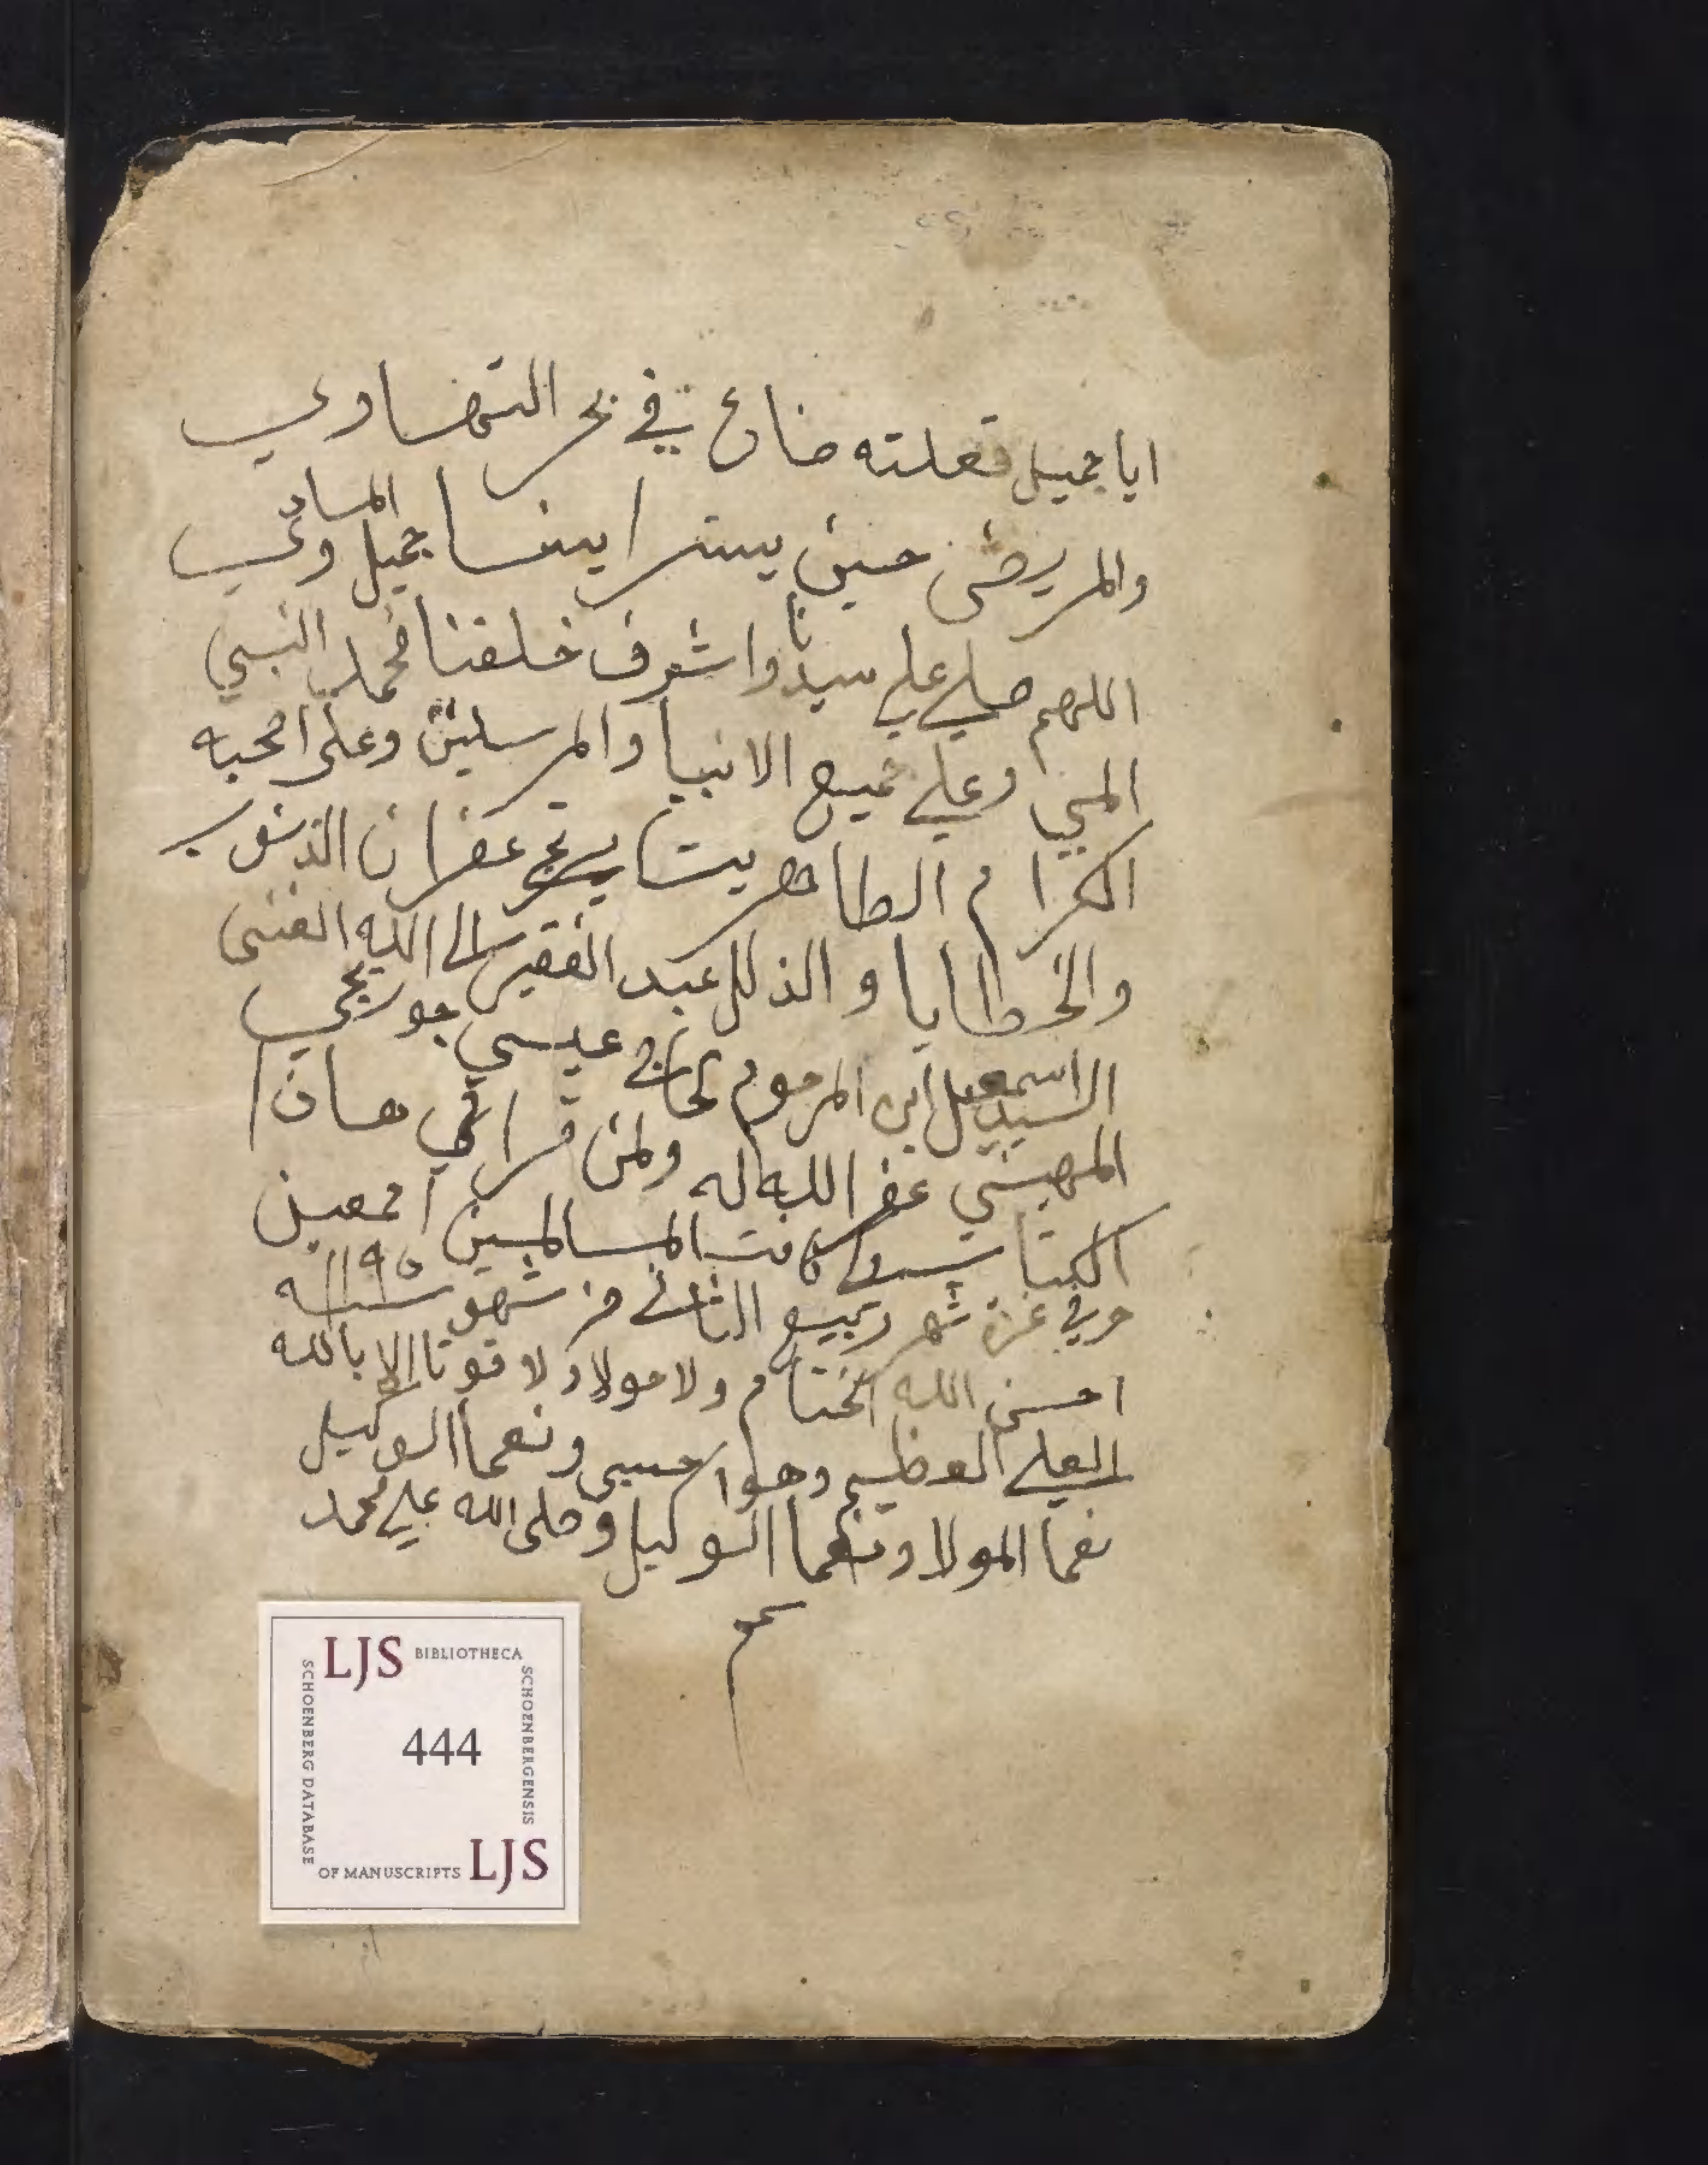 ايا جميل فعلته ضاع في بحر التهاوي
والمريض حين يستر ايينسا جميل المساوي
اللهم صلي علي سيدنا واشرف خلقنا محمد النبي
المجي وعلي جميع الانبيا والمرسلين وعلى اصحبه
الكرام الطاهرين غفران الذنوب
والخطايا و الذلل عبد الفقير الى الله الغنى
السيد اسمعيل ابن المرحوم الحاج عيسي جوربجي
المهيني غفر الله له ولمن قرا في هاذا
الكتاب المسالمين اجمعين
في غرة شهر ربيع الثاني من شهور سنه ١١٩٥
احسن الله الختام ولا حولا ولا قوتا الا بالله
العلي العظيم وهوا حسبي ونعما الوكيل
نعما المولا ونعما الوكيل وصلى الله علي محمد
LJS BIBLIOTHECA
SCHOENBERGENSIS
444
SCHOENBERG DATABASE
OF MANUSCRIPTS LJS